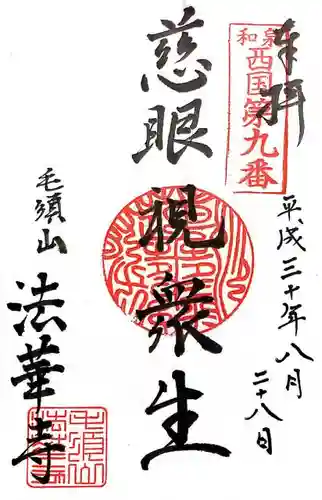 奉拝
和泉
西国第九番
平成三十年八月
二十八日
慈眼視衆生
毛須山
法華寺